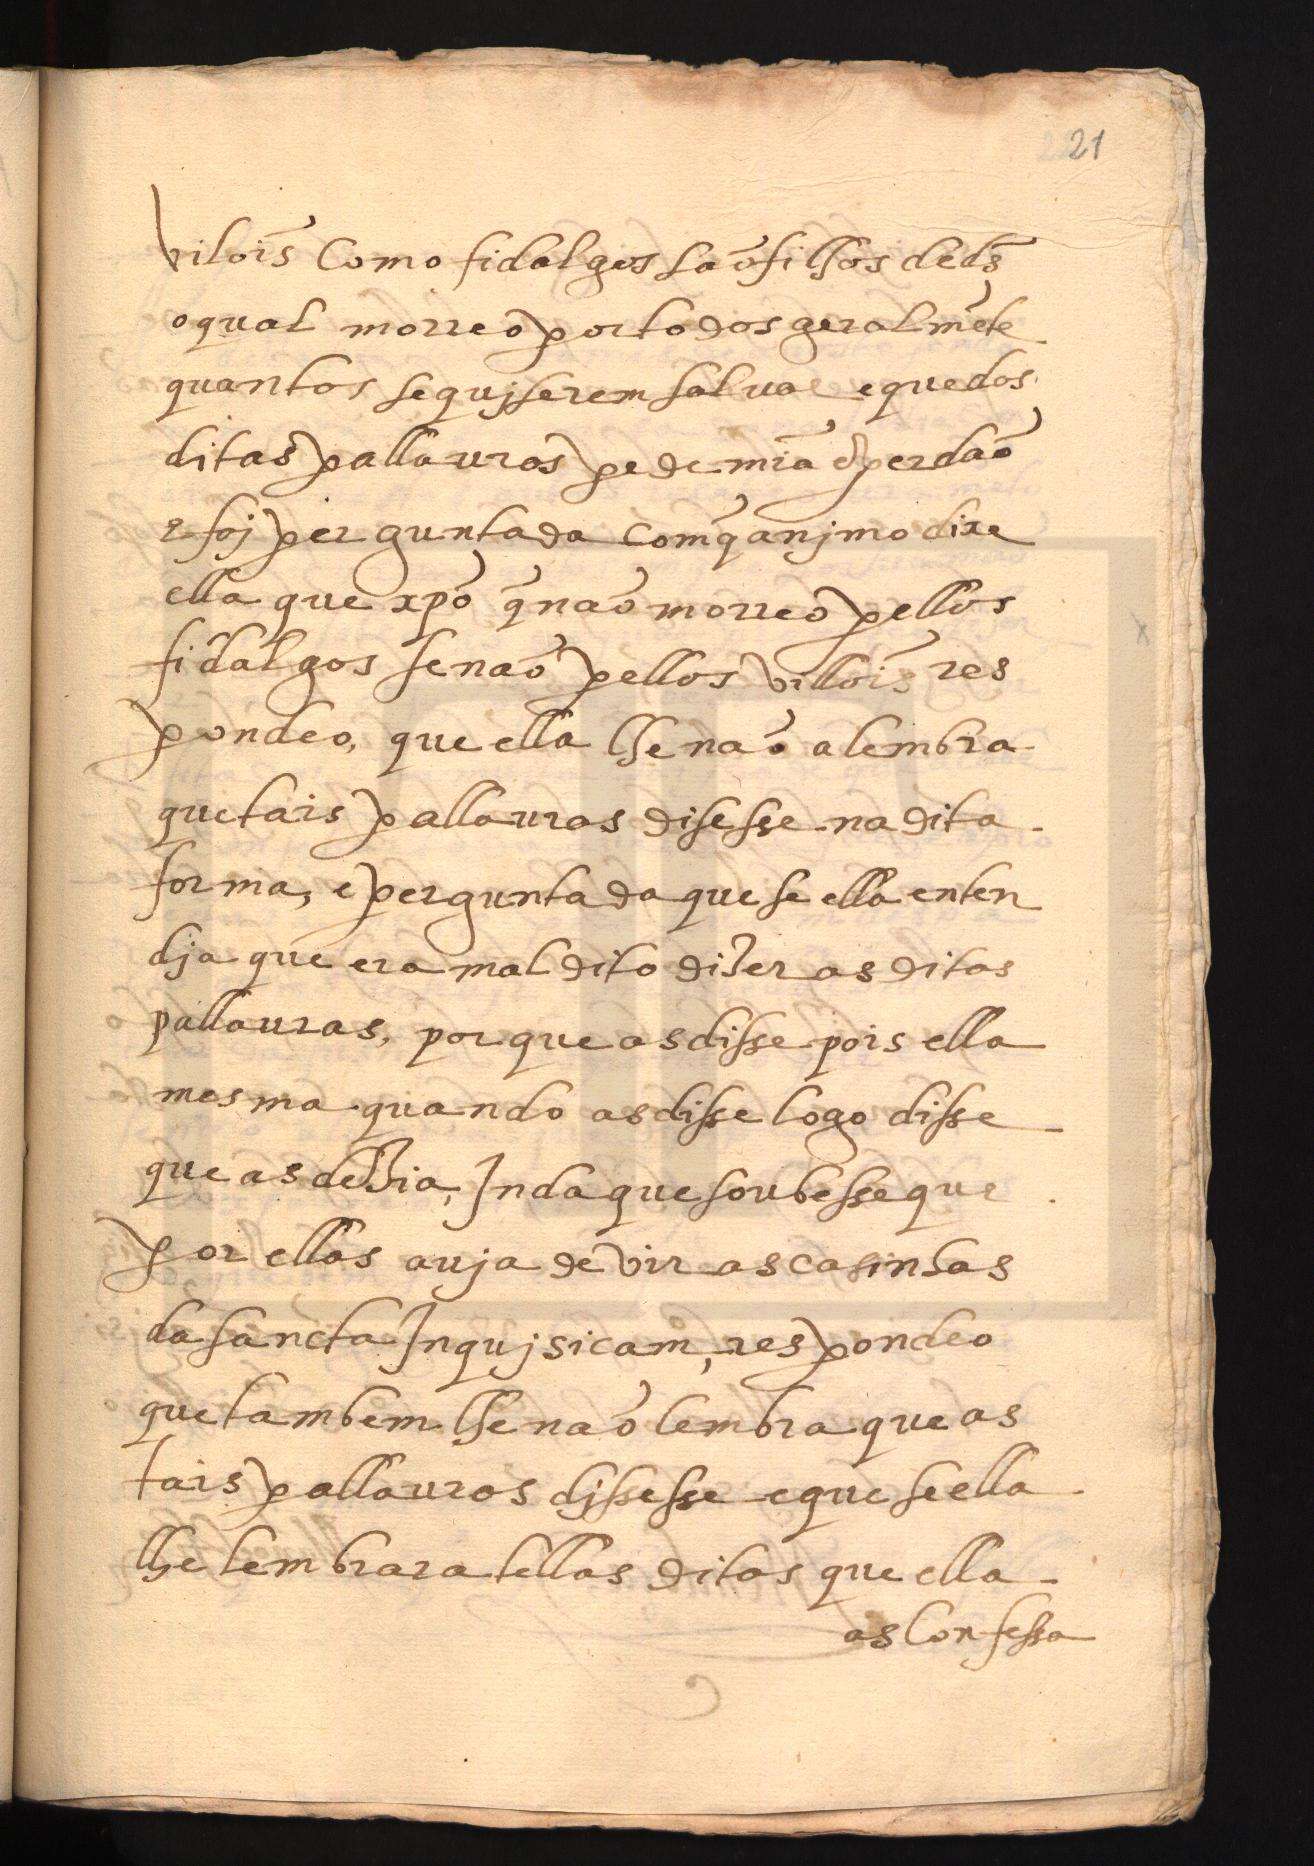 21
vilois̃ Como fidalgos saõ filhos de ds̃
o qual morreo por todos geralmẽte
quantos se quiserem salvar e que dos
ditas pallauras pede mia e perdaõ
e foj perguntada com q̃ anjmo dixe
ella que xp̃o q̃ naõ morreo pellos
fidalgos senaõ pellos villois̃ res
pondeo, que ella lhe naõ alembra
que tais pallauras disesse na dita
forma, e perguntada que se ella enten
dja que era mal dito dizer as ditas
pallauras, por que as disse pois ella
mesma quando as disse logo disse
que as dezia, Inda que soubesse que
por ellas auja de vir as casinhas
da sancta Inqujsicam, respondeo
que tambem lhe naõ lembra que as
tais pallauras djssesse e que se ella
lhe lembrara tellas ditas que ella
as Confessa